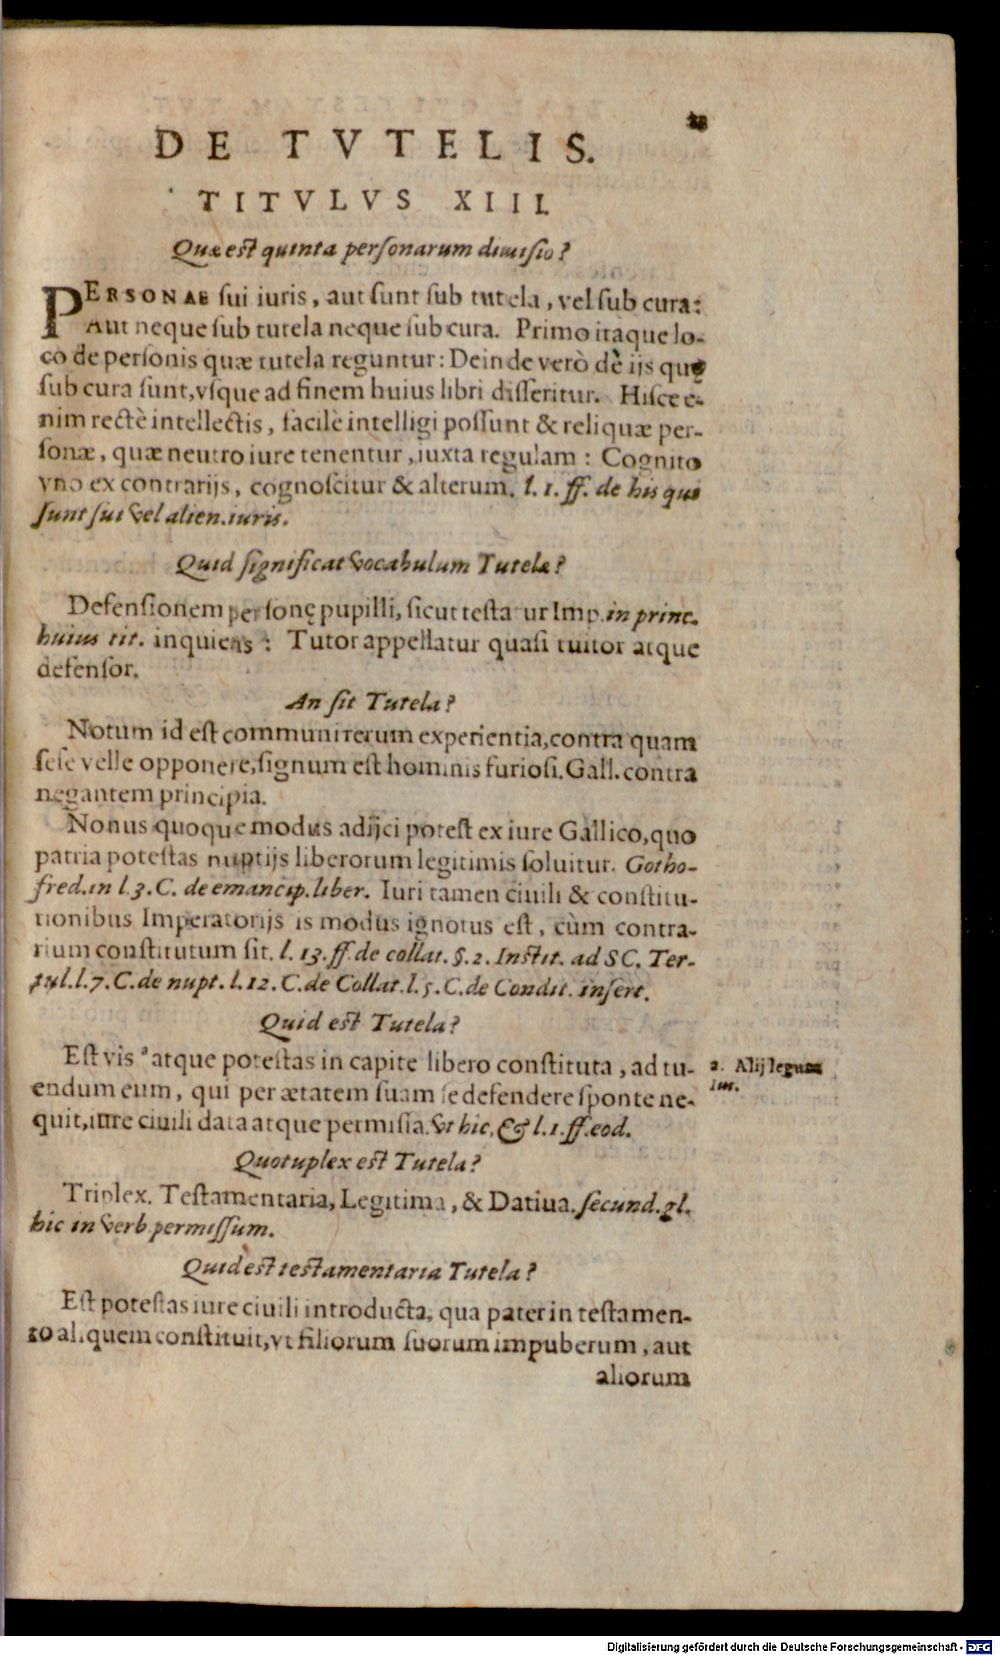 DE TVTELIS.
TITVLVS XIII.
Quæ est quinta personarum diuisio?
PERSONAE sui iuris, aut sunt sub tutela, vel sub cura:
Aut neque sub tutela neque sub cura. Primo itaque lo-
co de personis quæ tutela reguntur: Deinde verò de ijs quę
sub cura sunt, vsque ad finem huius libri disseritur. Hisce e-
nim rectè intellectis, facilè intelligi possunt & reliquæ per-
sonæ, quæ neutro iure tenentur, iuxta regulam: Cognito
vno ex contrarijs, cognoscitur & alterum. l. 1. ff. de his qui
sunt sui vel alien. iuris.
Quid significat vocabulum Tutelæ?
Defensionem personę pupilli, sicut testatur Imp. in princ.
huius tit. inquiens: Tutor appellatur quasi tuitor atque
defensor.
An sit Tutela?
Notum id est communi rerum experientia, contra quam
sese velle opponere, signum est hominis furiosi. Gall. contra
negantem principia.
Nonus quoque modus adijci potest ex iure Gallico, quo
patria potestas nuptijs liberorum legitimis soluitur. Gotho-
fred. in l. 3. C. de emancip. liber. Iuri tamen ciuili & constitu-
tionibus Imperatorijs is modus ignotus est, cùm contra-
rium constitutum sit. l. 13. ff. de collat. §. 2. Instit. ad SC. Ter-
tul. l. 7. C. de nupt. l. 12. C. de Collat. l. 5. C. de Condit. insert.
Quid est Tutela?
Est vis ª atque potestas in capite libero constituta, ad tu-
endum eum, qui per ætatem suam se defendere sponte ne-
quit, iure ciuili data atque permissa. vt hic, & l. 1. ff. eod.
a. Alij legunt
ius.
Quotuplex est Tutela?
Triplex. Testamentaria, Legitima, & Datiua. secund. gl.
hic in verb. permissum.
Quid est testamentaria Tutela?
Est potestas iure ciuili introducta, qua pater in testamen-
to aliquem constituit, vt filiorum suorum impuberum, aut
aliorum
Digitalisierung gefördert durch die Deutsche Forschungsgemeinschaft - DFG